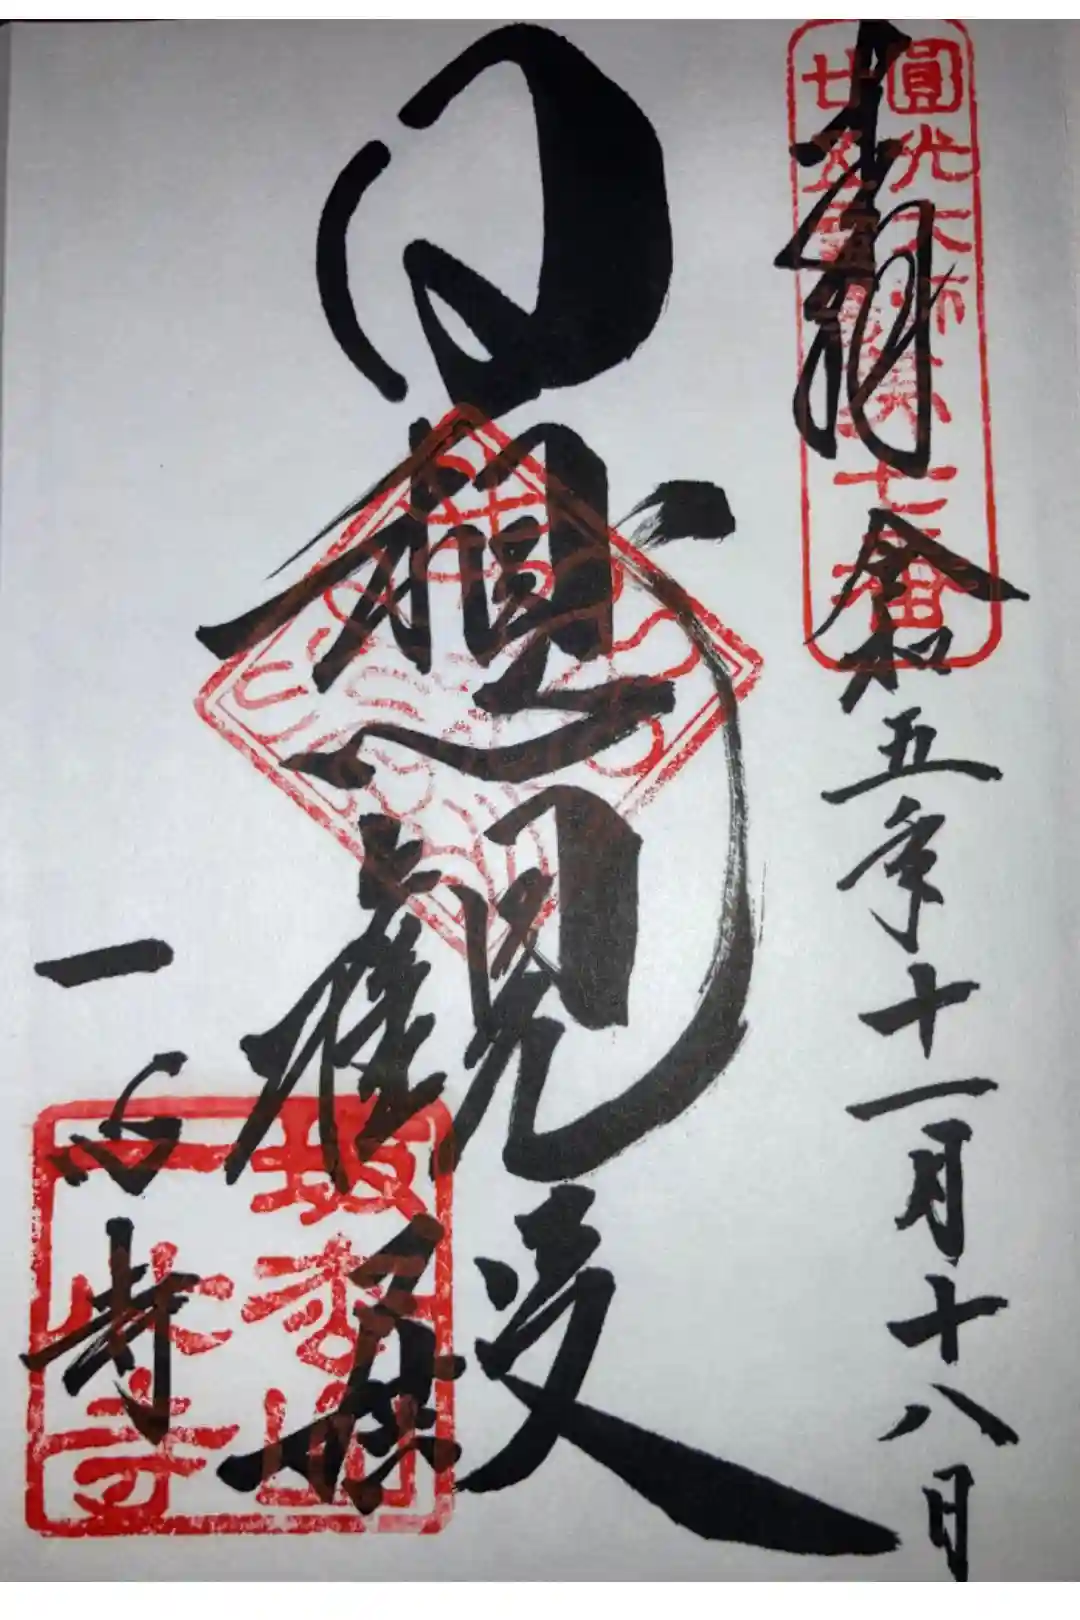 奉拝
令和五年十一月十八日
日想観殿
一心寺
圓光大師
廿五霊場第七番
坂松山
一心寺